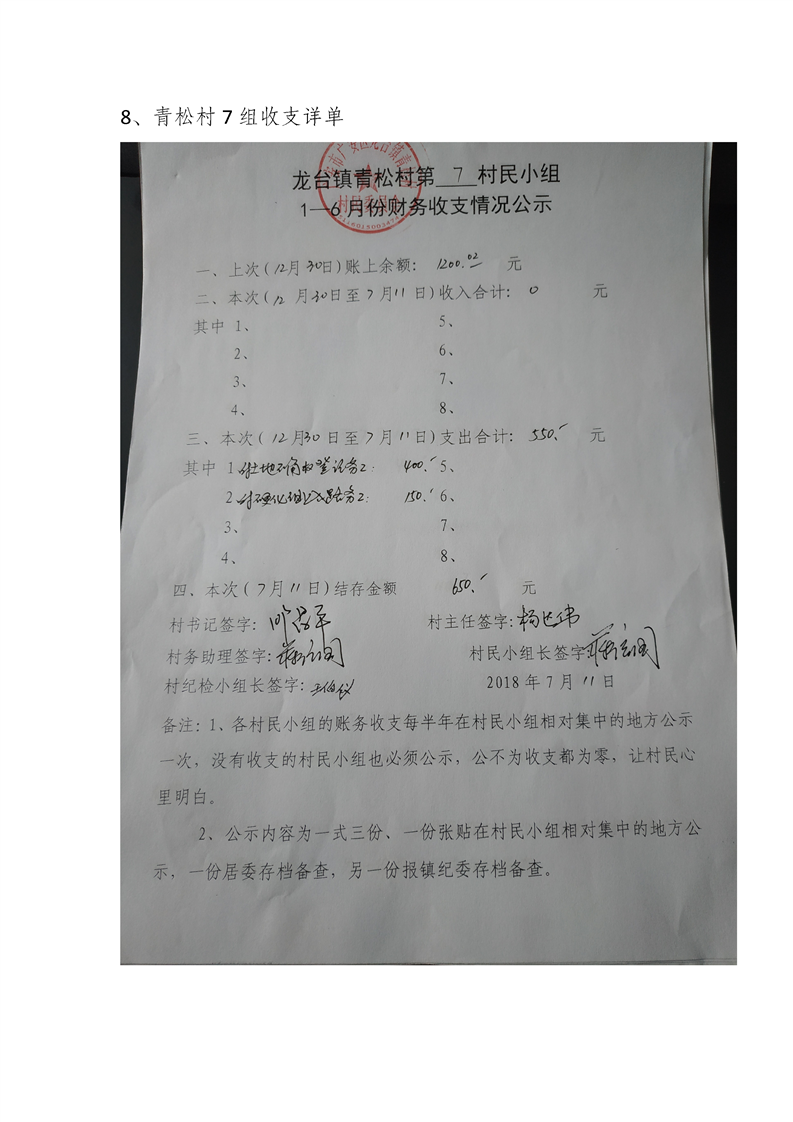 8、青松村 7 组收支详单
龙台镇青松村第 7 村民小组
1—6 月份财务收支情况公示
村民委员会
一、上次(12月30日)账上余额: 1200.02 元
二、本次(12月30日至7月11日)收入合计: 0 元
其中 1、 5、
2、 6、
3、 7、
4、 8、
三、本次(12月30日至7月11日)支出合计: 550.- 元
其中 1 土地确权登记务工: 400.- 5、
2 村硬化组公路务工: 150.- 6、
3、 7、
4、 8、
四、本次(7月11日)结存金额 650.- 元
村书记签字: 村主任签字:
村务助理签字: 村民小组长签字
村纪检小组长签字: 2018 年 7 月 11 日
备注: 1、各村民小组的账务收支每半年在村民小组相对集中的地方公示
一次, 没有收支的村民小组也必须公示, 公不为收支都为零, 让村民心
里明白。
2、公示内容为一式三份、一份张贴在村民小组相对集中的地方公
示, 一份居委存档备查, 另一份报镇纪委存档备查。